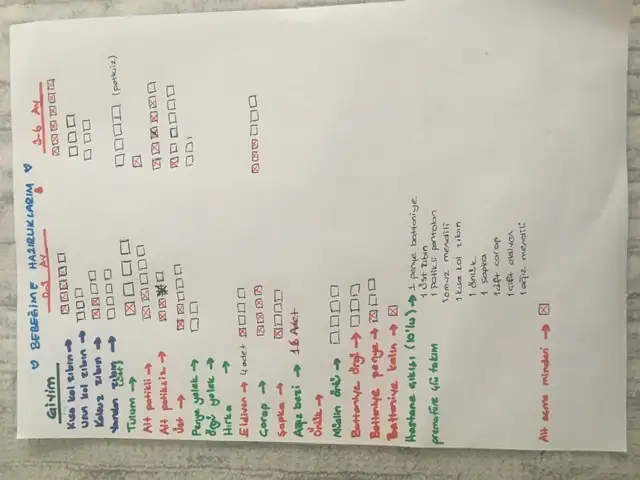 BEBEĞİME HAZIRLIKLARIM
Giyim
0-3 Ay
3-6 Ay
Kısa kol zıbın →
Uzun kol zıbın →
Kolsuz zıbın →
Yandan zıbın →
(patiksiz)
Tulum →
Alt patikli →
Alt patiksiz →
Üst →
Penye yelek →
Örgü yelek →
Hırka →
Eldiven → 4 adet
Çorap →
Şapka →
Ağız bezi → 16 Adet
Önlük →
Müslin örtü →
Battaniye örgü →
Battaniye penye →
Battaniye kalın →
Hastane çıkışı (10'lu) → 1 penye battaniye
prematüre takım
1 üst zıbın
1 patikli pantolon
1 omuz mendili
1 kısa kol zıbın
1 önlük
1 şapka
1 çift çorap
1 çift eldiven
1 ağız mendili
Alt açma minderi →